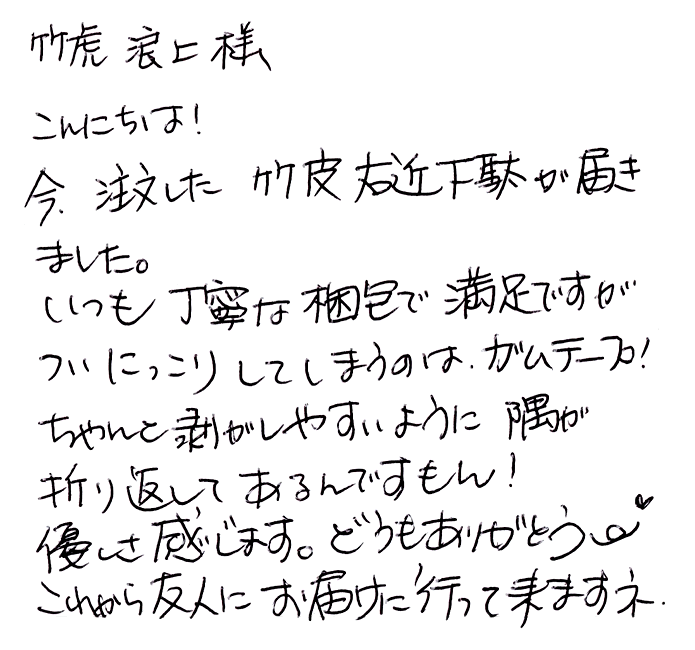 竹虎 浪上様
こんにちは!
今、注文した 竹皮右近下駄が届き
ました。
いつも丁寧な梱包で満足ですが
ついにっこりしてしまうのは、ガムテープ!
ちゃんと剥がしやすいように 隅が
折り返してあるんですもん!
優しさ感じます。どうもありがとう♥
これから友人にお届けに行って来ますネ.